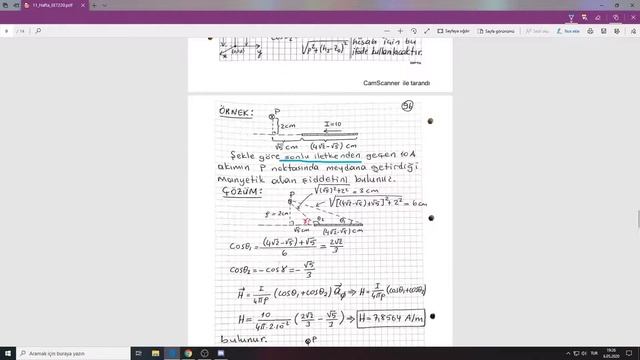 11_Hafta_EET220.pdf
9 / 14
Sayfaya sığdır
Sayfa görünümü
Sesli oku
Not ekle
hesabı için bu
ifade kullanılacaktır.
CamScanner ile tarandı
96
ÖRNEK:
P
2cm
I=10
√5 cm (4√2-√5) cm
Şekle göre sonlu iletkenden geçen 10A
akımın P noktasında meydana getirdiği
manyetik alan şiddetini bulunuz.
ÇÖZÜM:
√(√5)²+2² = 3 cm
P
√[(4√2-√5)+√5]²+2² = 6 cm
ρ=2cm
γ θ2 θ1
√5 cm (4√2-√5) cm
Cosθ1 = (4√2-√5)+√5 / 6 = 2√2 / 3
cosθ2 = -cosγ = -√5 / 3
H = I / 4πρ (cosθ1+cosθ2) aφ ⇒ H = I / 4πρ (cosθ1+cosθ2)
H = 10 / 4π.2.10⁻² (2√2 / 3 - √5 / 3) ⇒ H=7,8564 A/m
bulunur.
P
Aramak için buraya yazın
TUR
19:26
6.05.2020